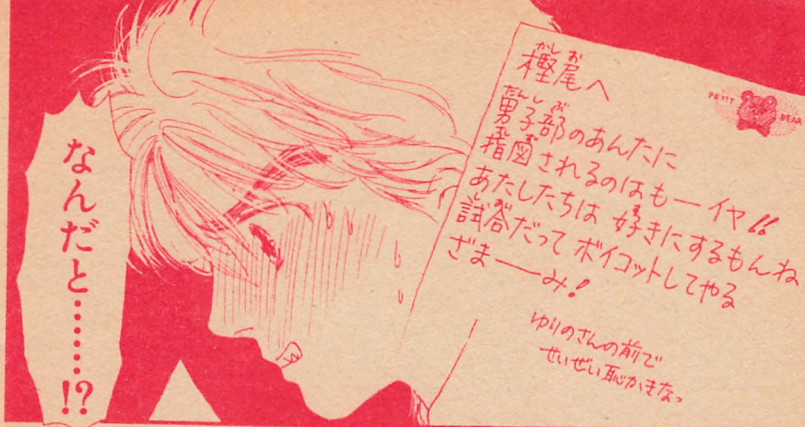 樫尾へ
男子部のあんたに
指図されるのはもーイヤ!!
あたしたちは 好きにするもんね
試合だって ボイコットしてやる
ざまーーみ!
ゆりのさんの前で
せいぜい恥かきなっ
PETIT BEAR
なんだと………!?